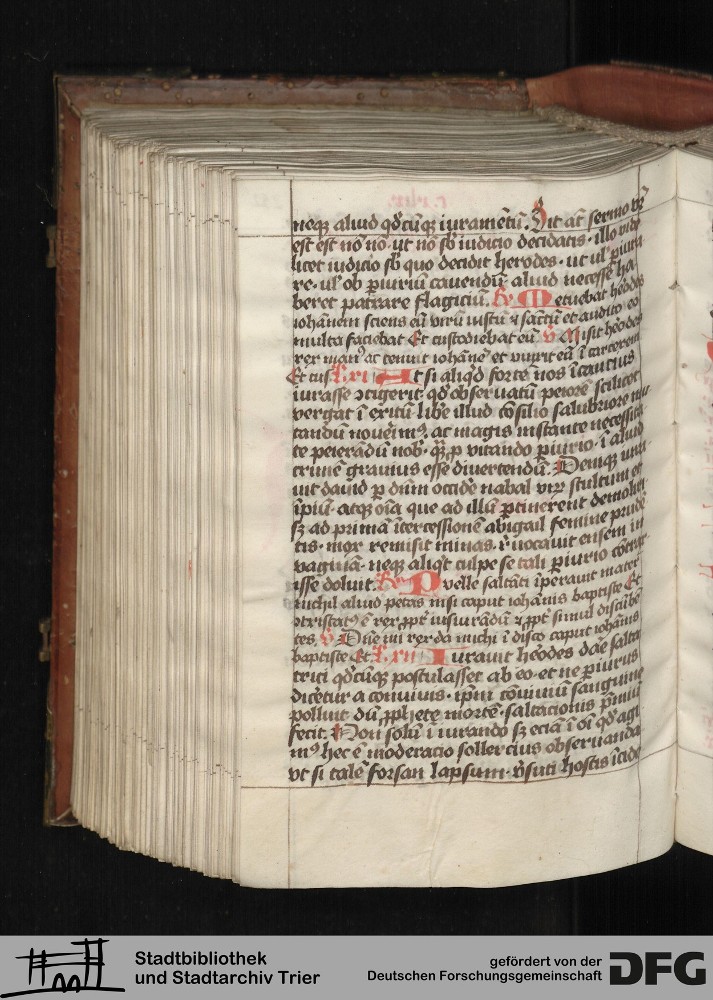 neq3 aliud qd̄cūq3 iuramētū. Sit at̄ sermo vr̄
est est nō nō · ut nō sb̄ iudicio decidatis · illo vide
licet iudicio sb̄ quo decidit herodes · ut ul' piura
re · ul' ob piuriū cauendū aliud necesse ha
beret patrare flagiciū. Rx Metuebat hēodes
iohānem sciens eū virū iustū ⁊ sāctū et audito eo
multa faciebat Et custodiebat eū v Misit hēodes
rex manꝰ ac tenuit iohānē et vīxit eū ī carcerem
Et cus. At si aliqd̄ forte nos īcautius
iurasse ↄtigerit qd̄ obseruatū peiorē scilicet
vergat ī exitū libē illud cōsilio salubriore mu
tandū nouerimꝰ. ac magis instante necessita
te peierādū nob̄ · q̄ꝫ p vitando piurio · ī aliud
crimē grauius esse diuertendū. Deniq3 iura
uit dauid p dn̄m occidē nabal virū stultum et
īpiū · atq3 oīa que ad illū ptinerent demoliri
sꝫ ad primā ītercessionē abigail femine prudē
tis · mox remisit minas · r̄uocauit ensem in
vaginā · neq3 aliqd̄ culpe se tali piurio cōtrax
isse doluit. Rx Puelle saltāti īperauit mater
nichil aliud petas nisi caput iohānis baptiste Et
ↄtristatꝰ ē rex ꝓpt̄ iusiurādū ⁊ ꝓpt̄ simul discūbē
tes v Dn̄e mi rex da michi ī disco caput iohānis
baptiste Et Iurauit hēodes dāe salta
trici qd̄cūq3 postulasset ab eo · et ne piurus
dicētur a conuiuis · ip̄m cōuiuiū sanguine
polluit dū ꝓphete mortē · saltacionis p̄miū
fecit. Non solū ī iurando sꝫ eciā ī oī qd̄ agi
mꝰ hec ē moderacio sollercius obseruanda
vt si talē forsan lapsum · v̄suti hostis īcide
Stadtbibliothek
und Stadtarchiv Trier
gefördert von der
Deutschen Forschungsgemeinschaft
DFG